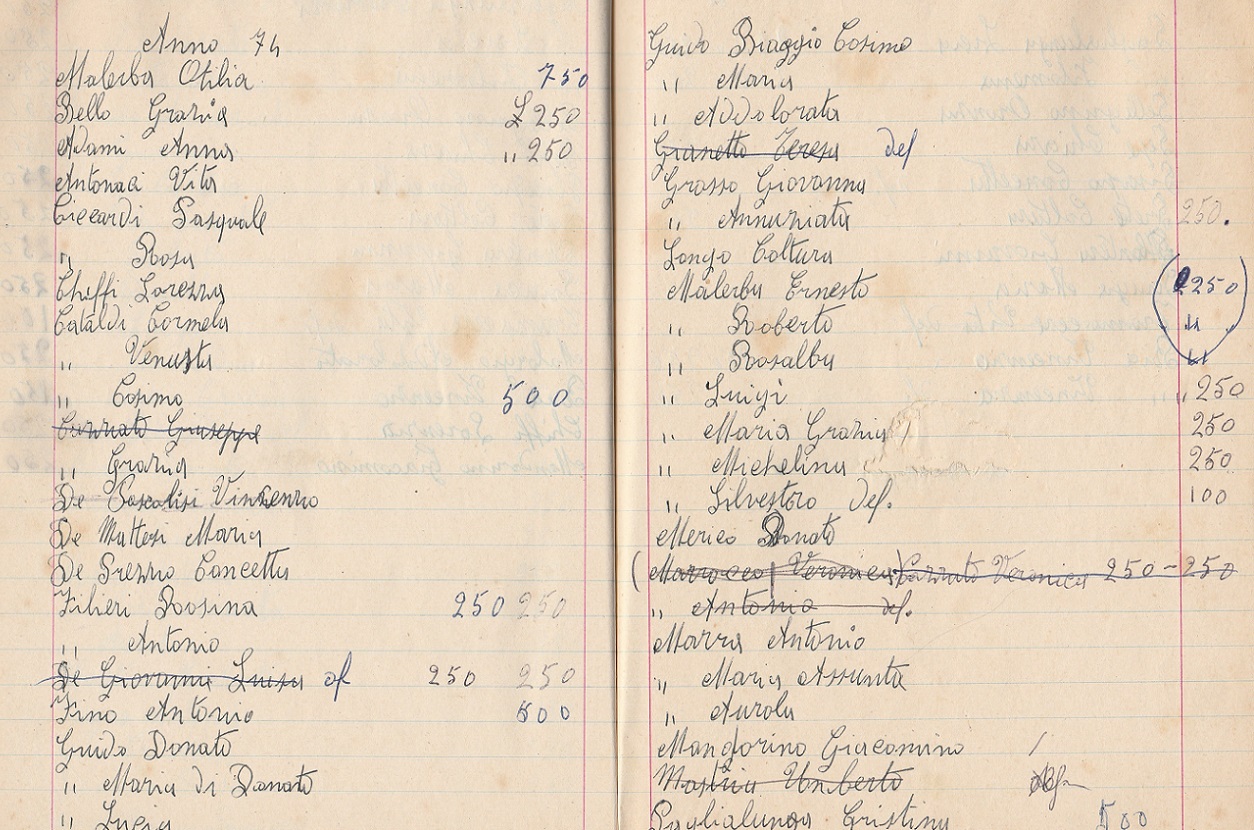 Anno 74
Malerba Otilia 750
Bello Grazia £ 250
Adami Anna " 250
Antonaci Vita
Ciccardi Pasquale
" Rosa
Cheffi Lorezza
Cataldi Cormela
" Venusta
" Cosimo 500
Cazzato Giuseppe
" Grazia
De Pascalisi Vincenzo
De Mattesi Maria
De Prezzo Concetta
Filieri Rosina 250 250
" Antonio
De Giovanni Luisa 250 250
Fino Antonio 500
Guido Donato
" Maria di Donato
" Lucia
Guido Biaggio Cosimo
" Maria
" Addolorata
Granetto Teresa def
Grasso Giovanna
" Annunziata 250.
Longo Coltura
Malerba Ernesto 250
" Roberto "
" Rosalba "
" Luigi " 250
" Maria Grazia 250
" Michelina 250
" Silvestro def. 100
Merico Donato
(Marrocco Veronica) Cazzato Veronica 250-250
" Antonio def.
Marra Antonio
" Maria Assunta
" Aurola
Mandorino Giacomino /
Mastria Umberto
Paglialunga Cristina 500